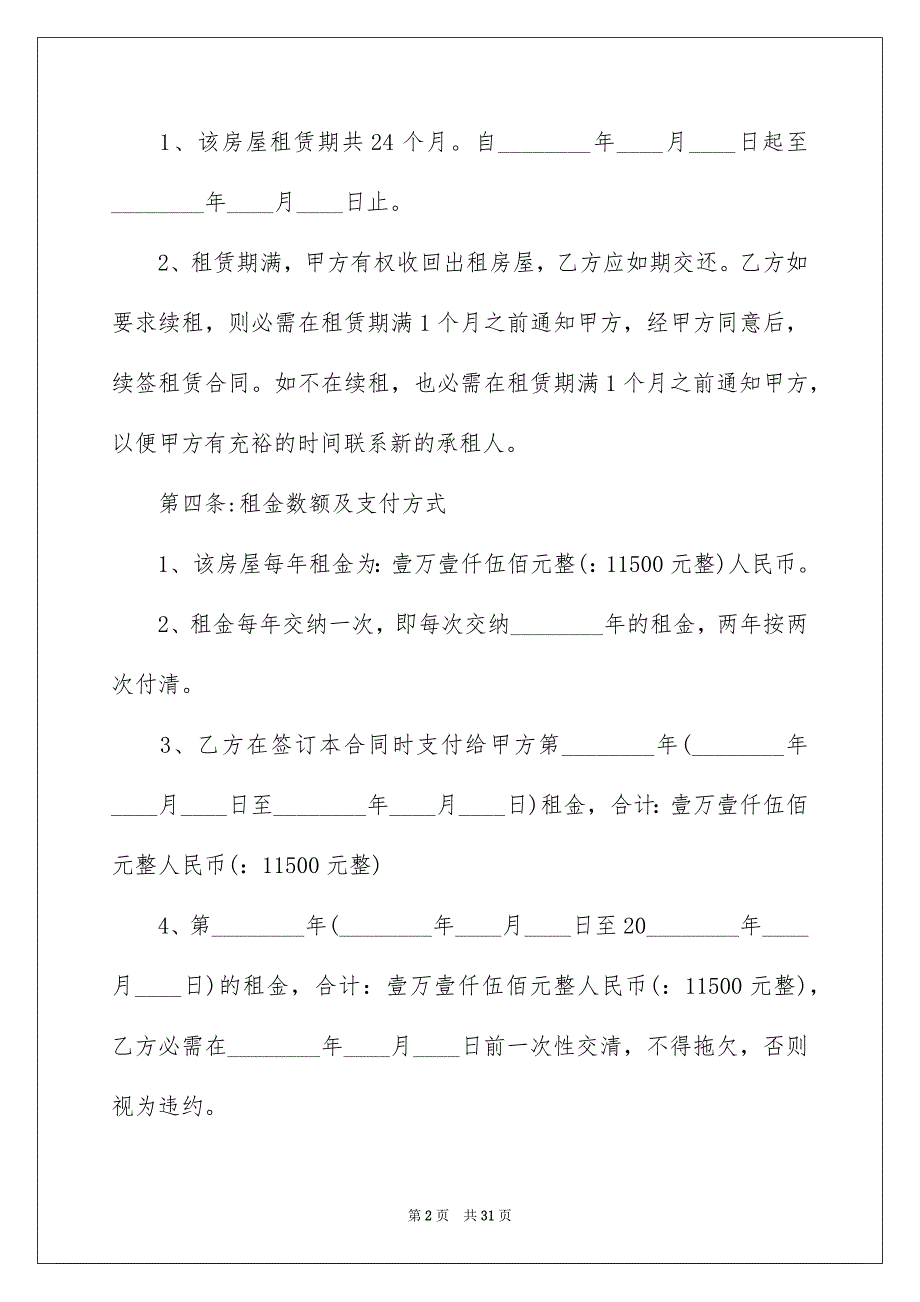 1、该房屋租赁期共 24 个月。自________年____月____日起至
________年____月____日止。
2、租赁期满，甲方有权收回出租房屋，乙方应如期交还。乙方如
要求续租，则必需在租赁期满 1 个月之前通知甲方，经甲方同意后，
续签租赁合同。如不在续租，也必需在租赁期满 1 个月之前通知甲方，
以便甲方有充裕的时间联系新的承租人。
第四条:租金数额及支付方式
1、该房屋每年租金为: 壹万壹仟伍佰元整(: 11500 元整)人民币。
2、租金每年交纳一次，即每次交纳________年的租金，两年按两
次付清。
3、乙方在签订本合同时支付给甲方第________年(________年
____月____日至________年____月____日)租金，合计: 壹万壹仟伍佰
元整人民币(: 11500 元整)
4、第________年(________年____月____日至 20________年____
月____日)的租金，合计: 壹万壹仟伍佰元整人民币(: 11500 元整)，
乙方必需在________年____月____日前一次性交清，不得拖欠，否则
视为违约。
第 2 页 共 31 页